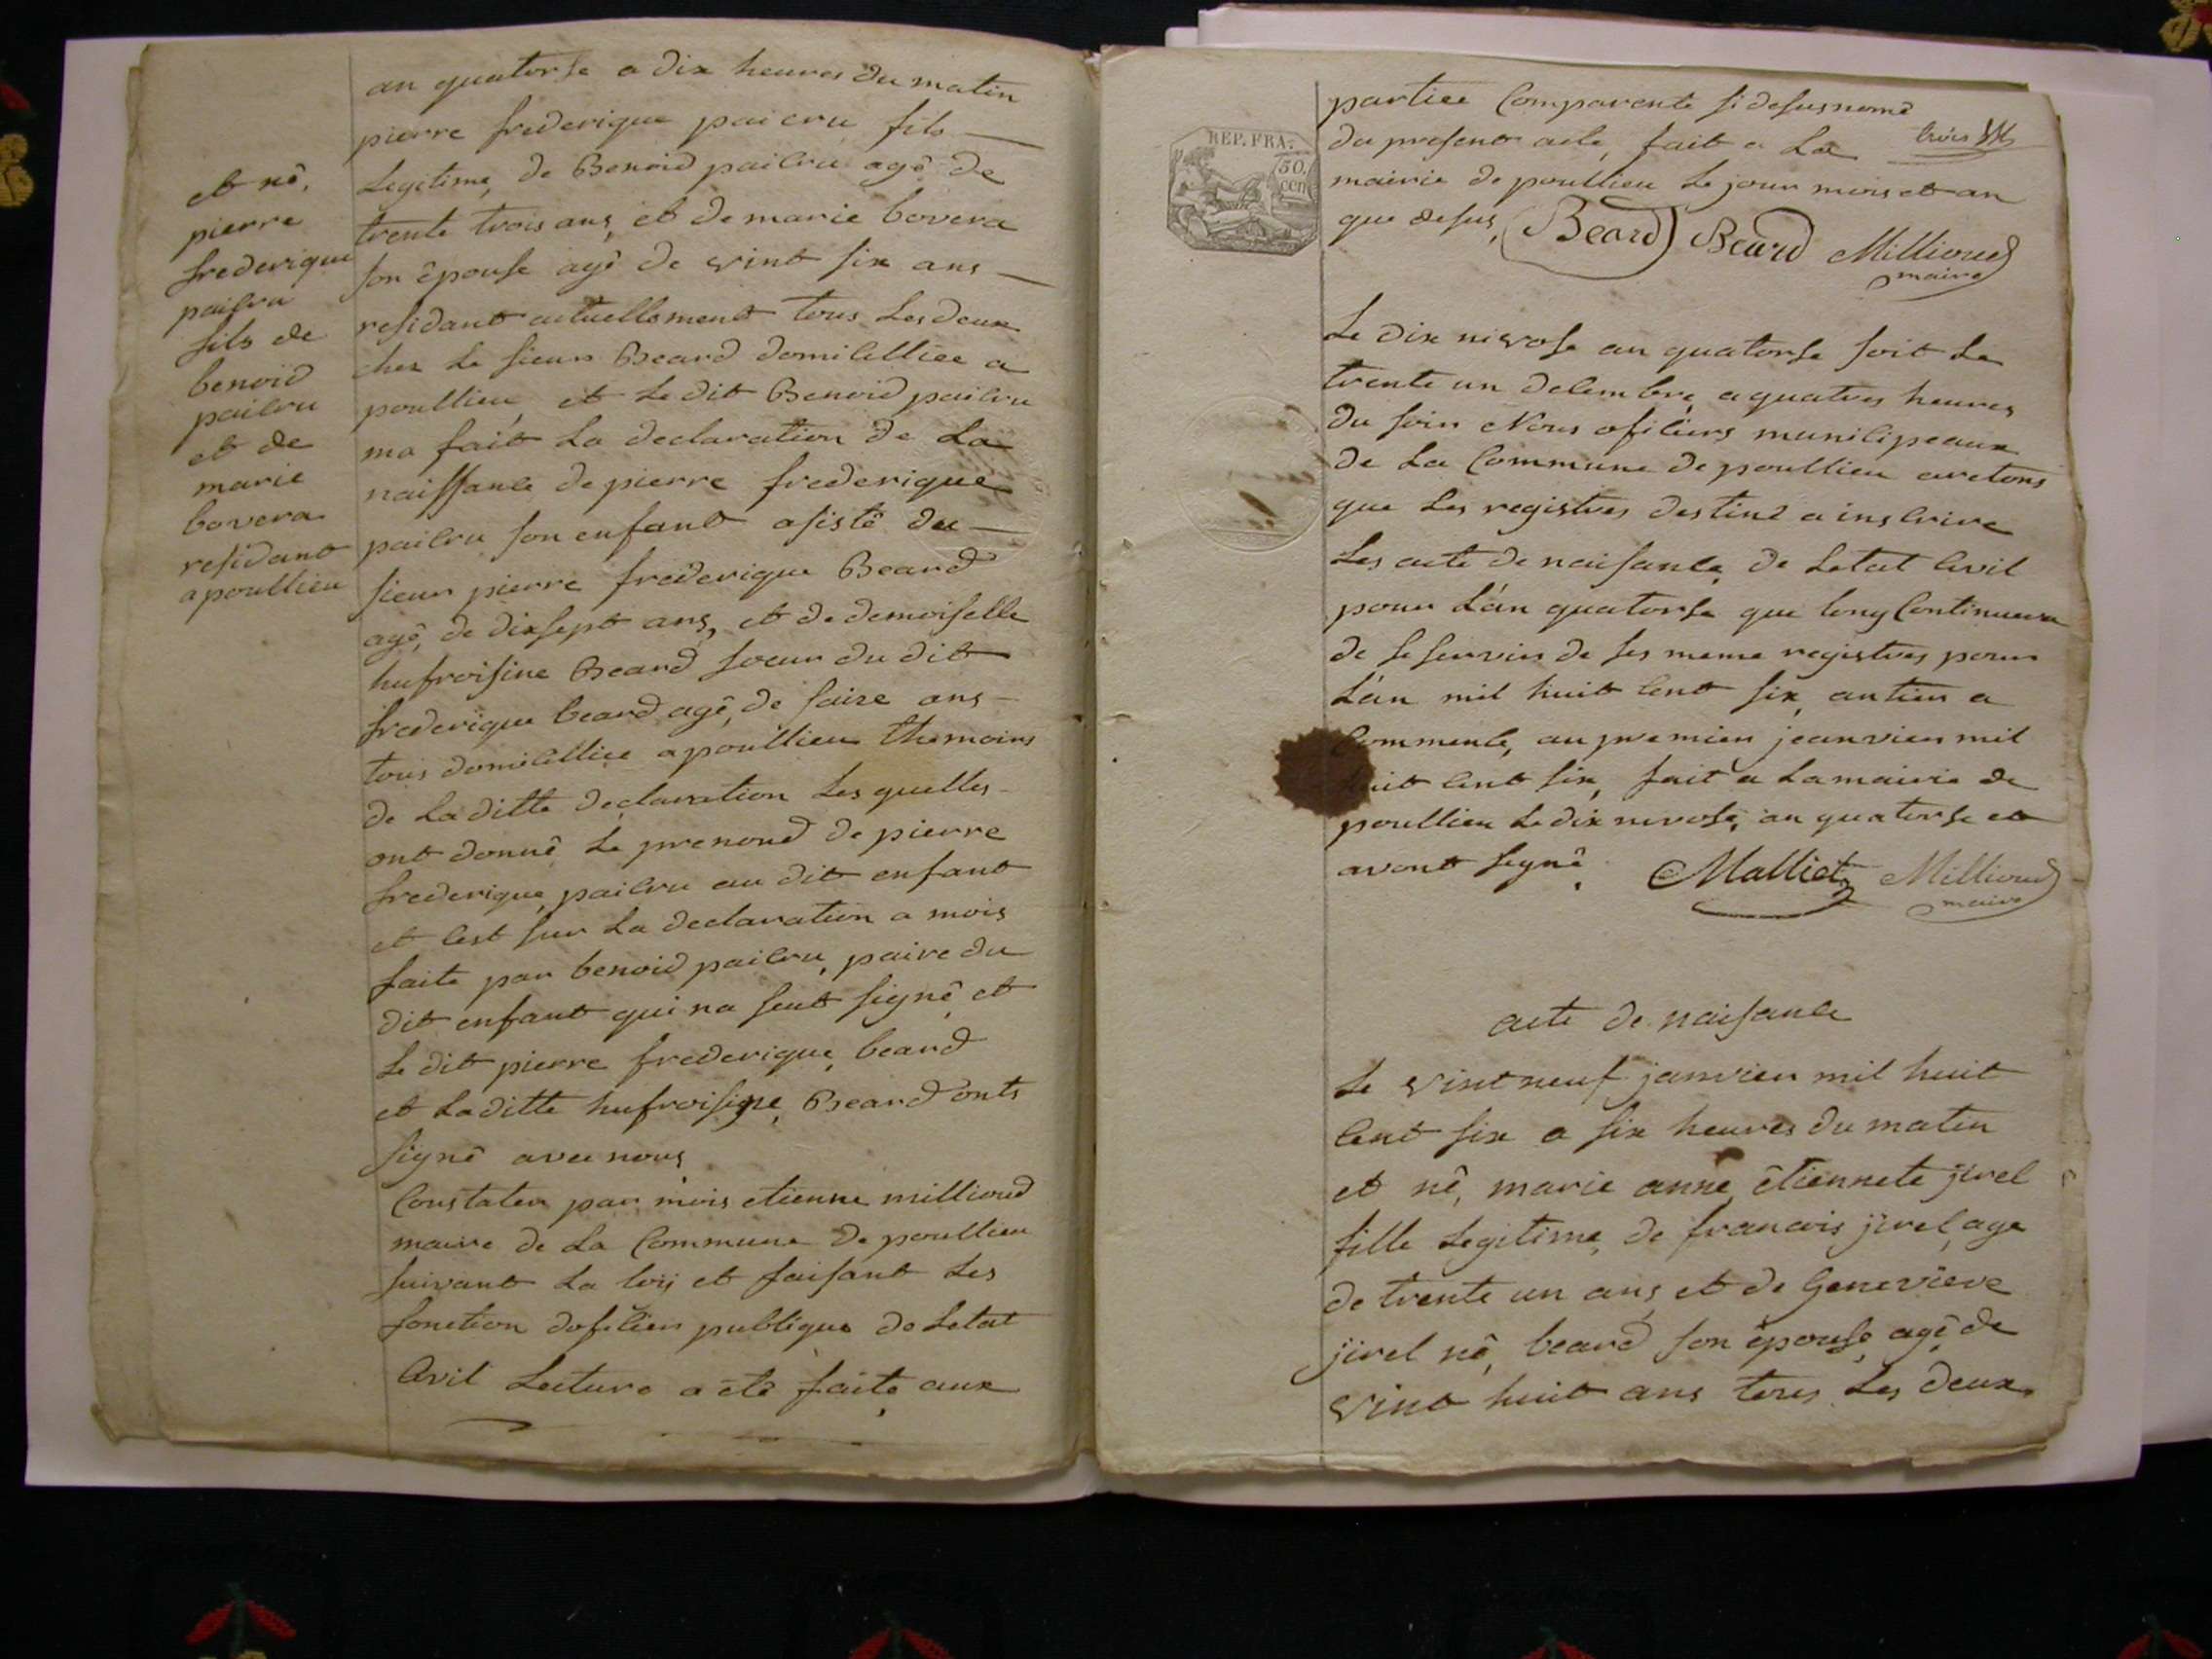 et né,
pierre
frederique
paicru
fils de
benoid
paicru
et de
marie
bovera
residant
a poullieu
an quatorse a dix heures du matin
pierre frederique paicru fils
Legitime, de Benoid paicru agé de
trente trois ans, et de marie bovera
son épouse agé de vint six ans
residant actuellement tous Les deux
ches Le sieur Beard domicilliée a
poullieu, et Le dit Benoid paicru
ma fait La declaration de La
naissance de pierre frederique
paicru son enfant asisté du
sieur pierre frederique Beard
agé, de dixsept ans, et de demoiselle
hufroisine Beard soeur du dit
frederique beard agé, de saize ans
tous domicilliée a poullieu themoins
de La ditte declaration Les quelles
ont donné, Le prenond de pierre
frederique, paicru au dit enfant
et cest sur La declaration a mois
faite par benoid paicru, paire du
dit enfant qui na seut signé, et
Le dit pierre frederique, beard
et La ditte hufroisine, Beard onts
signé avec nous
Constater par mois etienne millioud
maire de La Commune de poullieu
suivant La loij et faisant Les
fonction doficier publique de Letat
Civil Lecture a été faite, aux
REP. FRA.
50.
cen
partiee Comparente si desusnomé
du present acte, fait a La trois
mairie de poullieu Le jour mois et an
que desus, Beard Beard Millioud
maire
Le dix nivose an quatorse soit Le
trente un decembre, a quatres heures
du soir Nous oficiers municipeaux
de La Commune de poullieu aretons
que Les registres destiné a inscrire
Les acte de naisance, de Letat Civil
pour L'an quatorse que long Continuera
de se servir de ses meme registres pour
L'an mil huit cent six, antier a
Commence, au premier jeanvier mil
huit cent six, fait a La mairie de
poullieu Le dix nivose, an quatorse et
avont signé. Malliet Millioud
maire
acte de naisance
Le vint neuf janvier mil huit
cent six a six heures du matin
et né, marie anne, étiennete jirel
fille Legitime, de francois jirel, age
de trente un ans, et de Genevieve
jirel né, beard son épouse, agé, de
vint huit ans tous Les deux